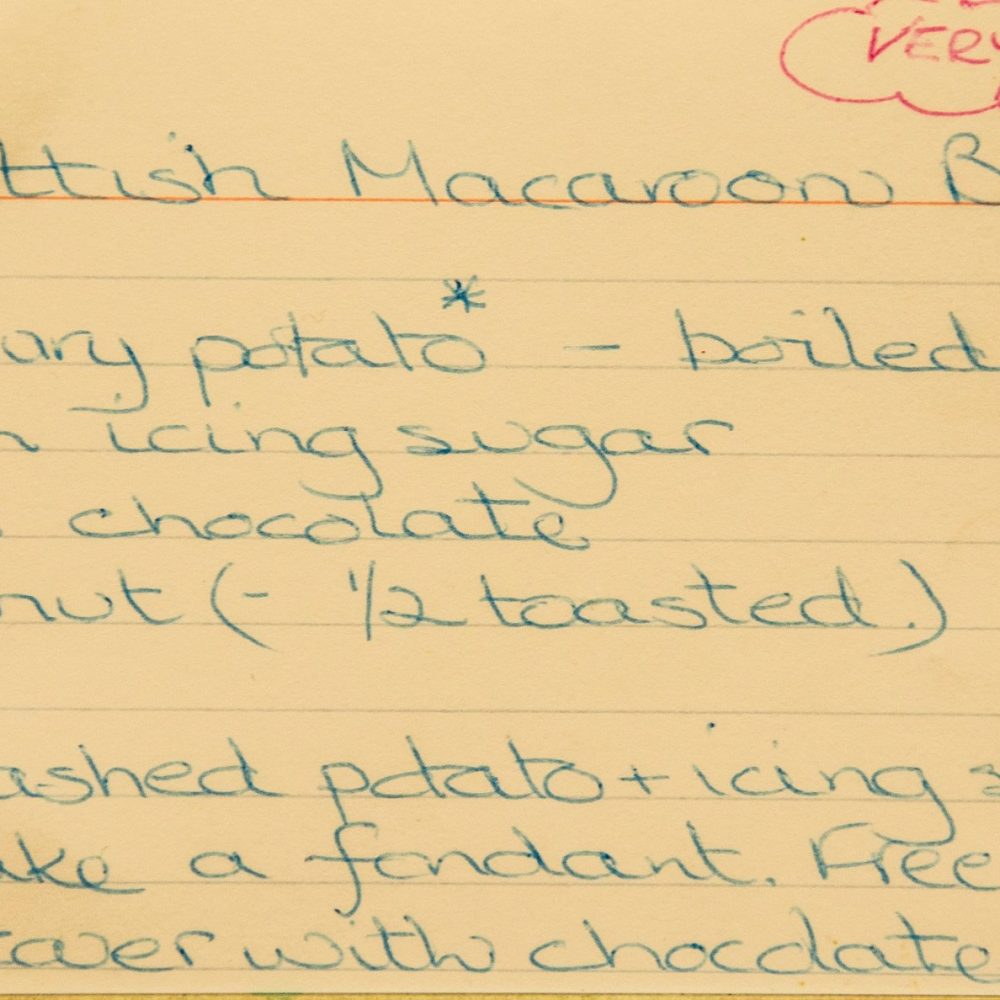 VERY
ttish Macaroon B
ary potato* - boiled
icing sugar
chocolate
nut (- 1/2 toasted.)
ashed potato + icing s
ake a fondant. Free
cover with chocolate